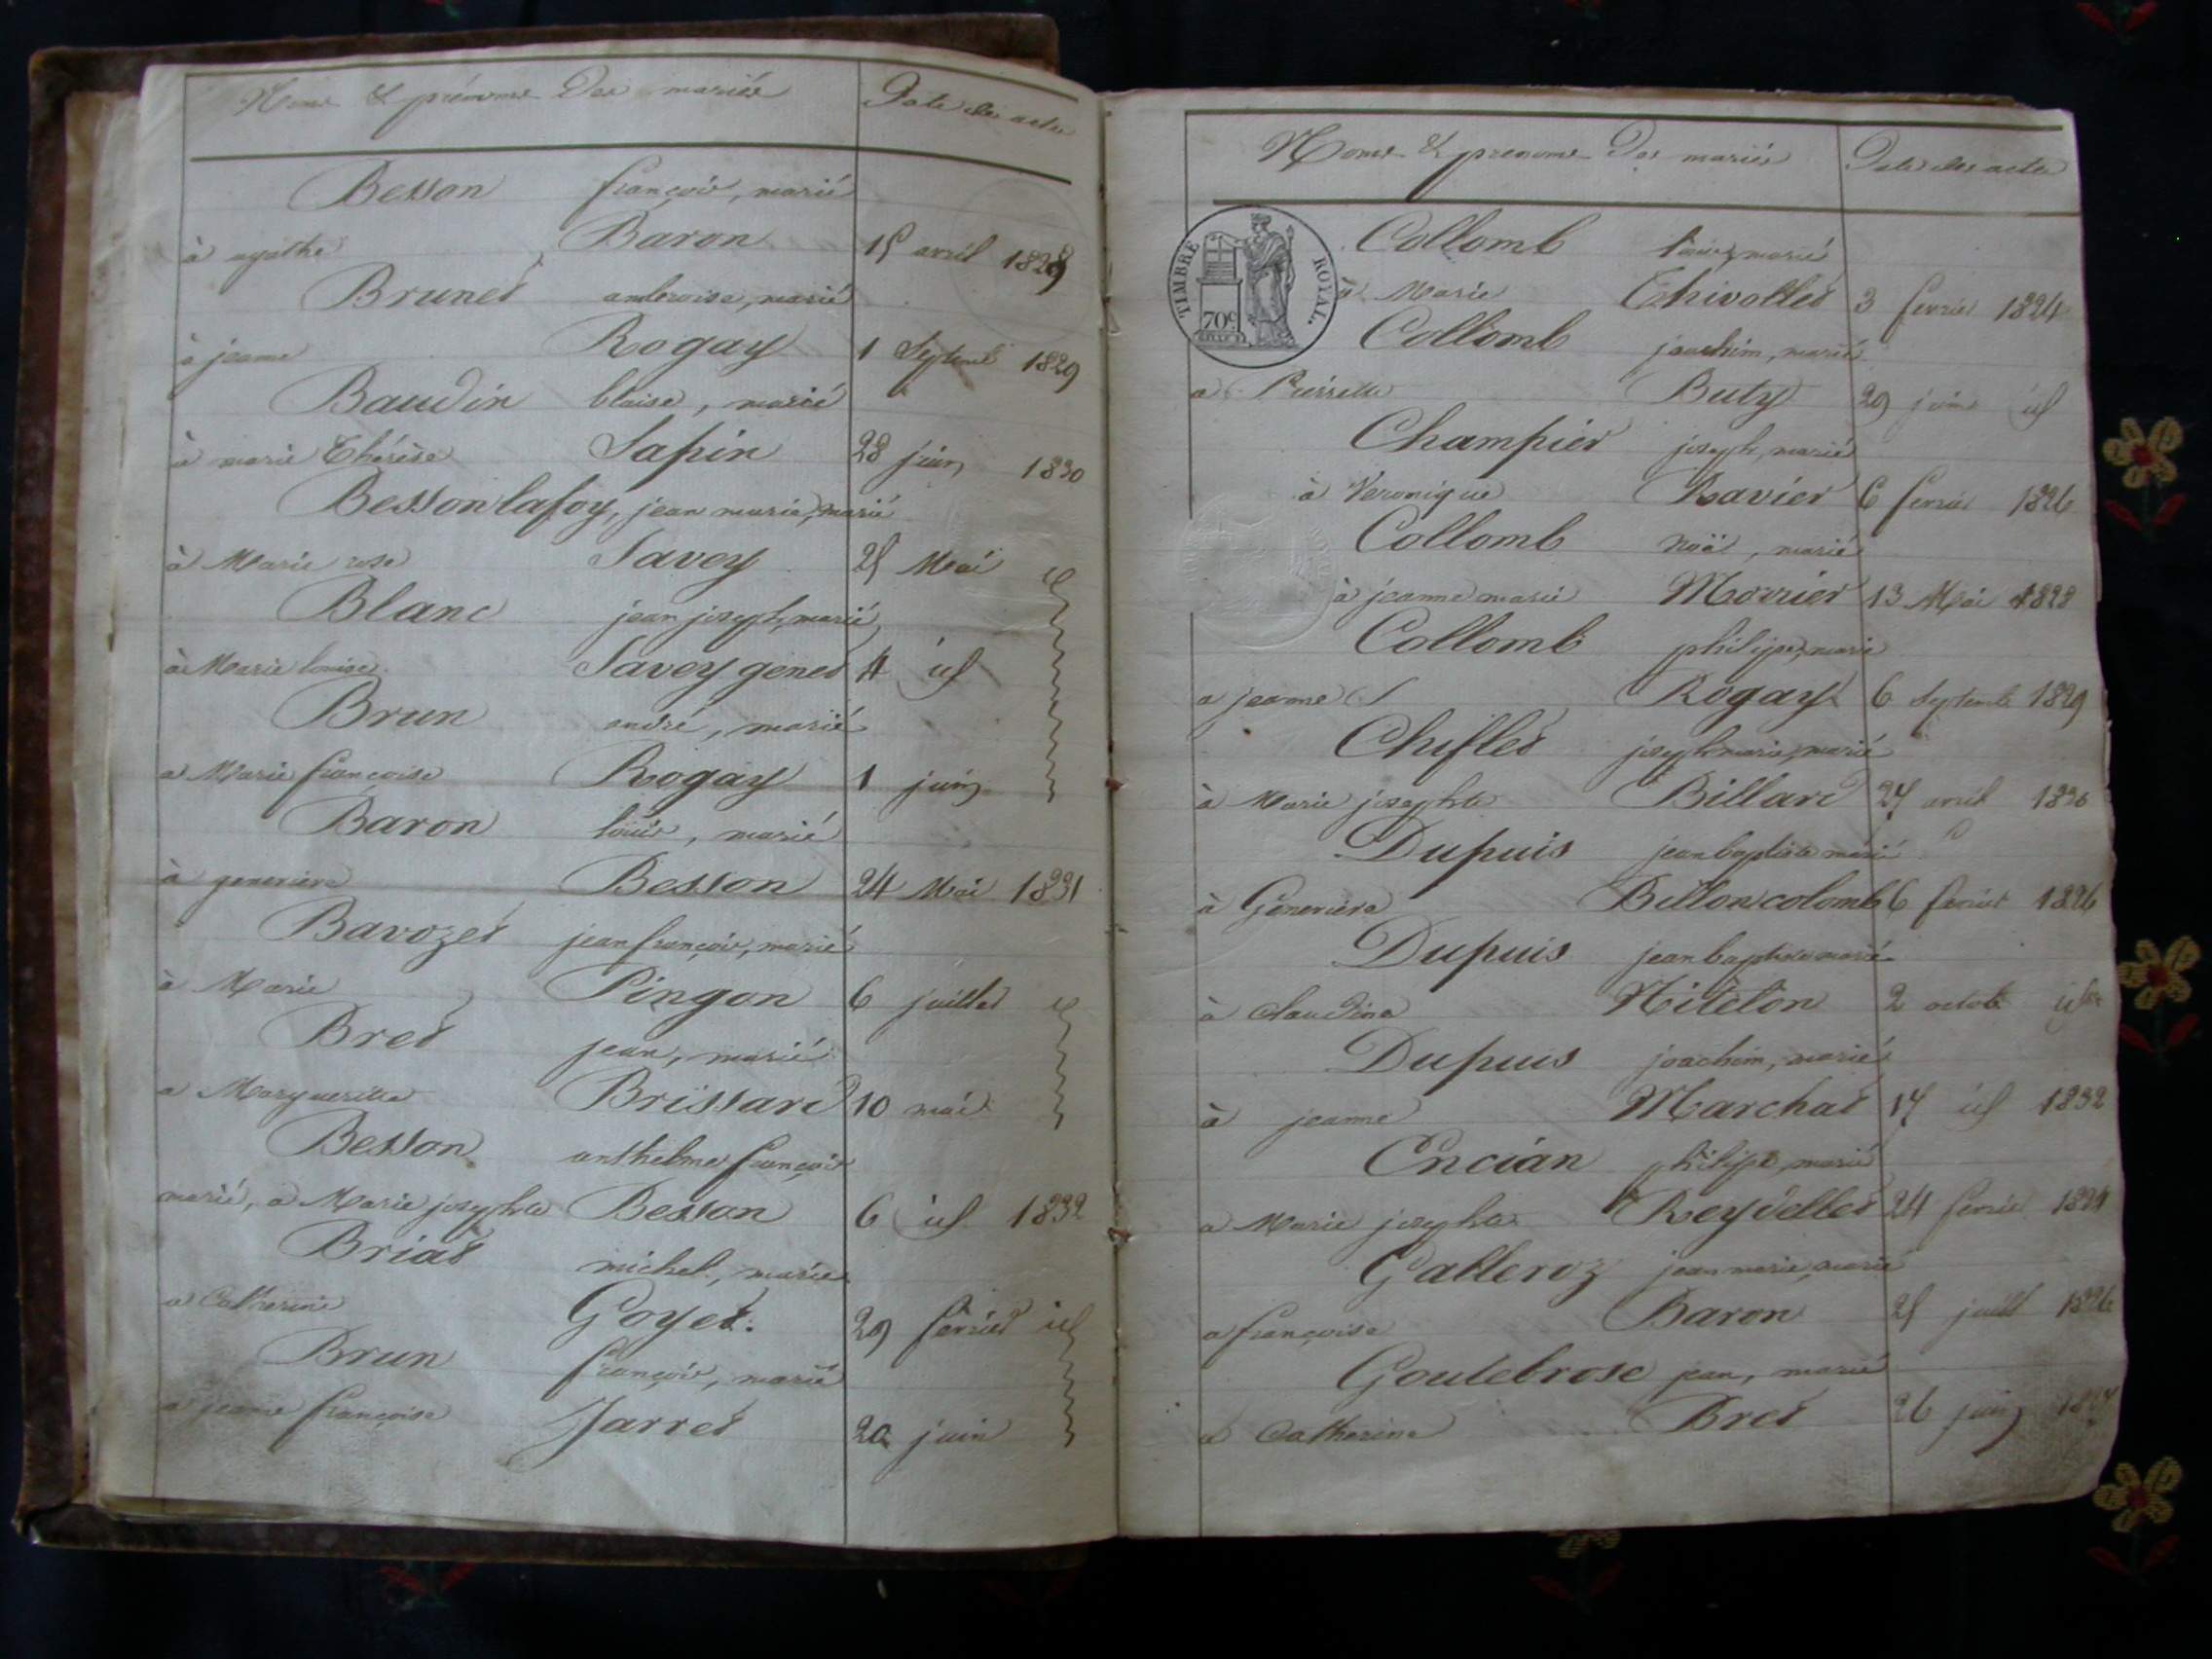 Noms & prénoms des mariés Date des actes
Besson françois, marié
à agathe Baron 15 avril 1829
Brunet ambroise, marié
à jeanne Rogay 1 Septemb 1829
Baudin blaise, marié
à marie Thérèse Sapin 28 juin 1830
Bessonlafoy, jean marie, marié
à Marie rose Savey 25 Mai id
Blanc jean joseph, marié
à Marie louise Savey genet 4 id
Brun andré, marié
a Marie françoise Rogay 1 juin
Baron louis, marié
à genevieve Besson 24 Mai 1831
Bavozet jean françois, marié
à Marie Pingon 6 juillet id
Bret jean, marié
a Margueritte Brissard 10 mai
Besson anthelme françois
marié, a Marie josephte Besson 6 id 1832
Briat michel, marié
a Catherine Goyet. 29 février id
Brun françois, marié
a jeanne françoise Jarret 20 juin
Noms & prenoms des mariés Date des actes
TIMBRE ROYAL.
70c
Collomb louis, marié
à Marie Thivollet 3 fevrier 1824
Collomb joachim, marié
a Pierrette Buty 29 juin id
Champier joseph, marié
à Veronique Ravier 6 fevrier 1826
Collomb noë, marié
à jeanne marie Morrier 13 Mai 1828
Collomb philipe, marié
a jeanne Rogay 6 Septemb 1829
Chiflet joseph marie, marié
à Marie josephte Billard 27 avril 1830
Dupuis jean baptiste marié
à Génevieve Billon colomb 6 fevrier 1826
Dupuis jean baptiste marié
à Claudine Niteton 2 octob id
Dupuis joachim, marié
à jeanne Marchat 17 id 1832
Encian philipe, marié
a Marie josephte Reydellet 24 fevrier 1824
Galleroz jean marie, marié
a françoise Baron 25 juill 1826
Goutebrose jean, marié
a Catherine Bret 26 juin